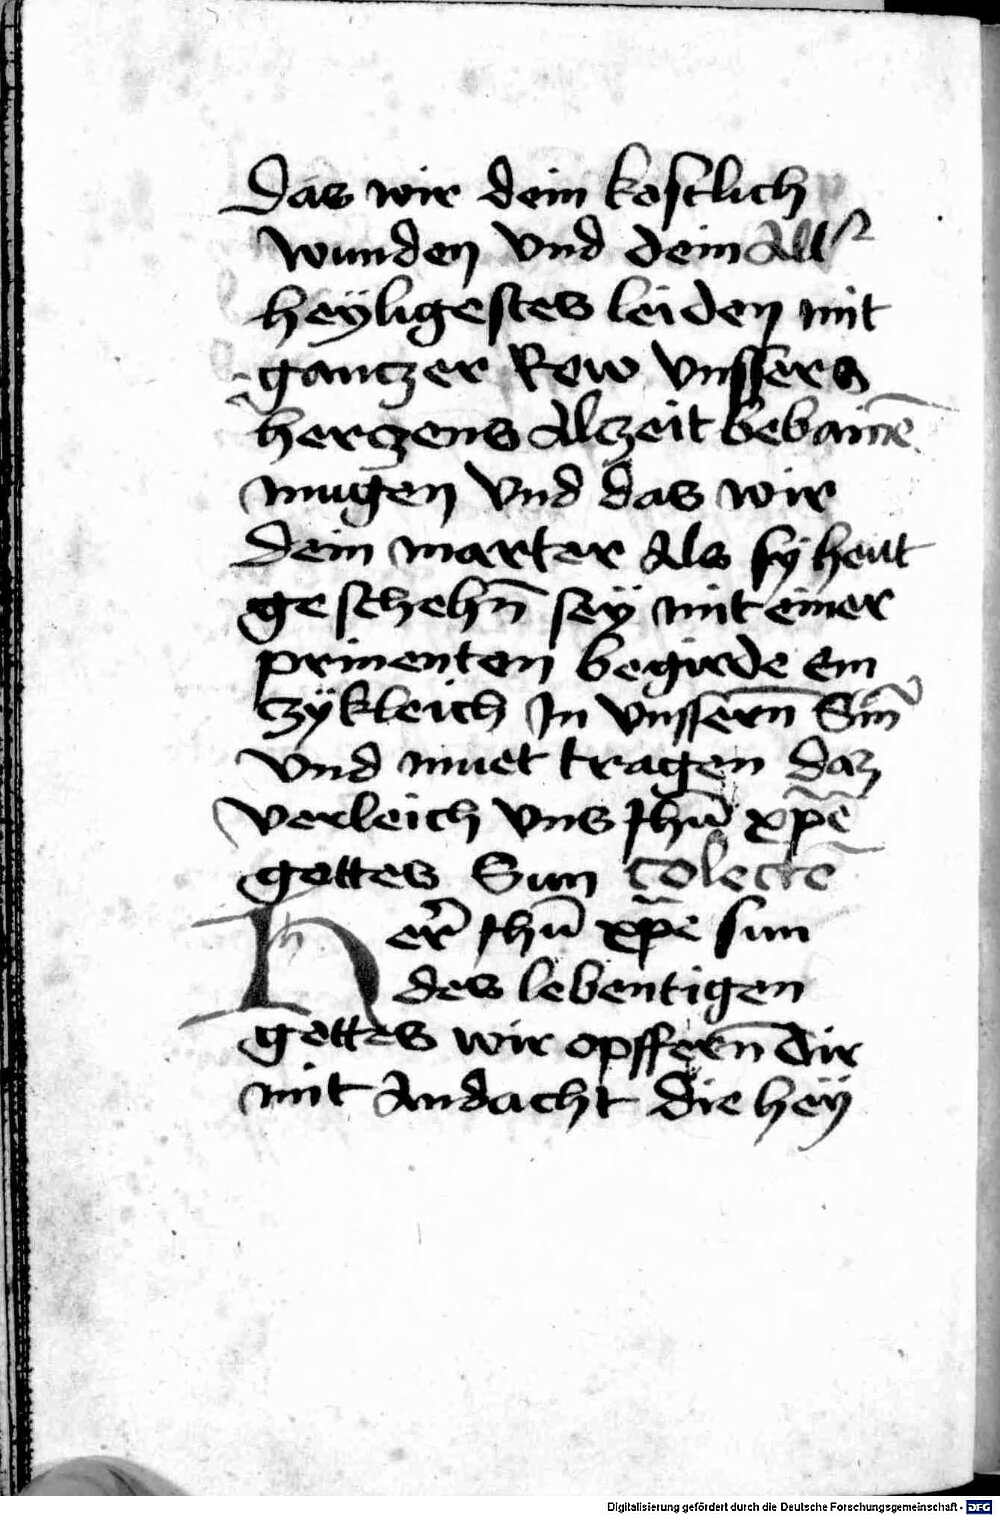 Das wir dein kostlich
wunden vnd dein All
heÿligestes leiden mit
gantzer Rew vnssers
herczens Alczeit bebainē
mugen vnd das wir
dein marter Als sÿ heut
geschehn̄ seÿ mit einer
prinenten begirde ein
czÿkleich In vnssern̄ Sin̄
vnd muet tragen daz
verleich vns Jhū xp̄e
gottes Sun Colecte
Her̄ Jhū xp̄e sun
des lebentigen
gottes wir opffern̄ dir
mit Andacht die heÿ
Digitalisierung gefördert durch die Deutsche Forschungsgemeinschaft - DFG